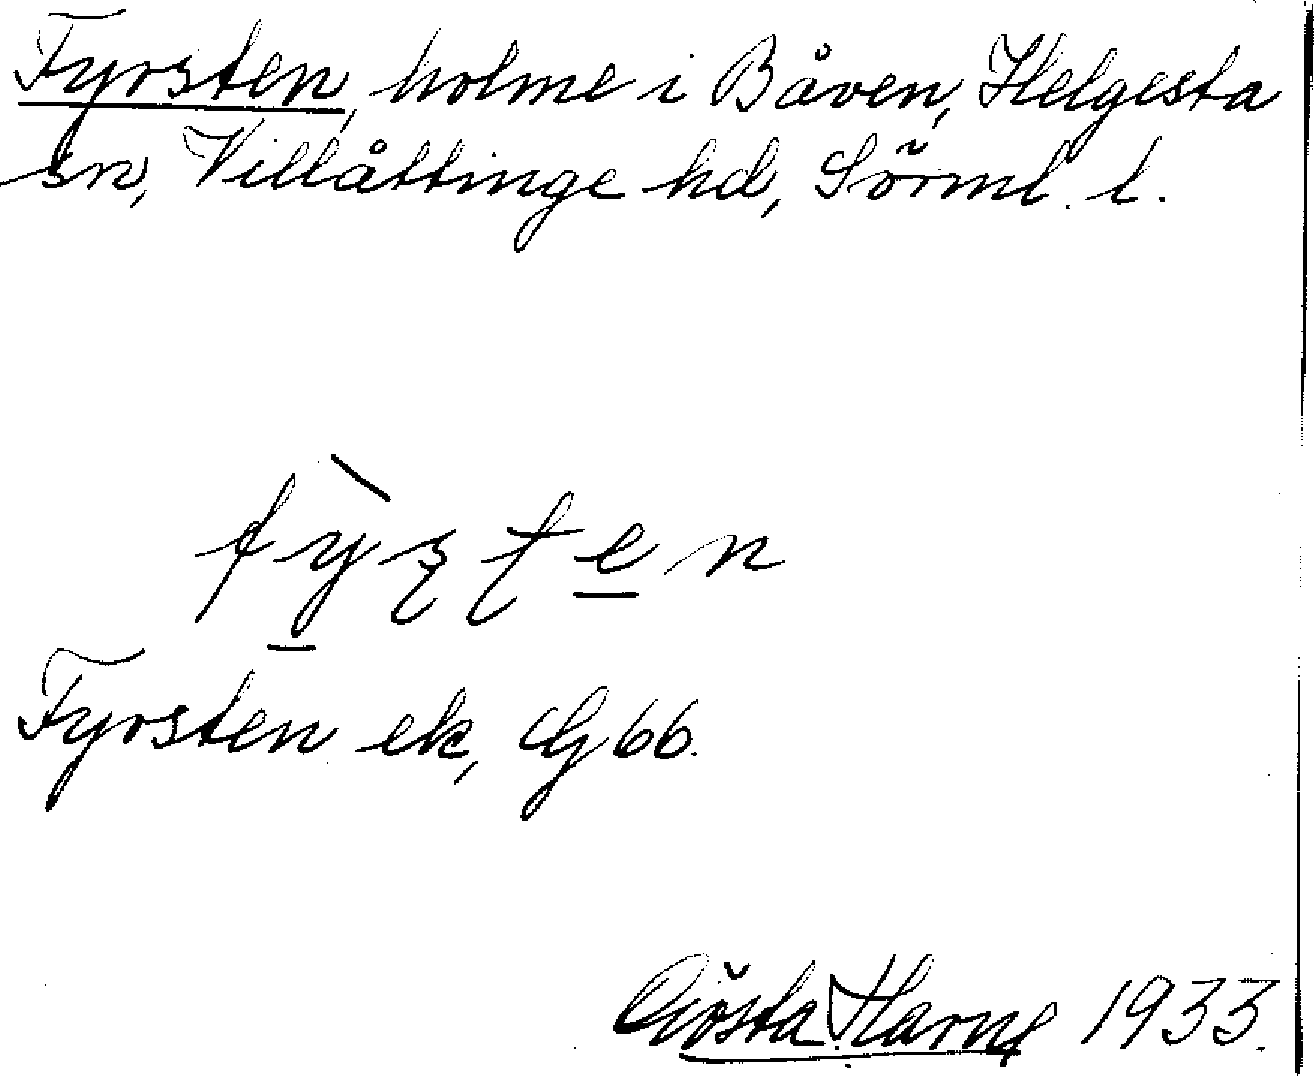 Fyrsten, holme i Båven, Helgesta
sn, Villåttinge hd, Sörml. l.
fỳ̱ʂʈe̱n
Fyrsten ek, G 66.
Gösta Harne 1933.